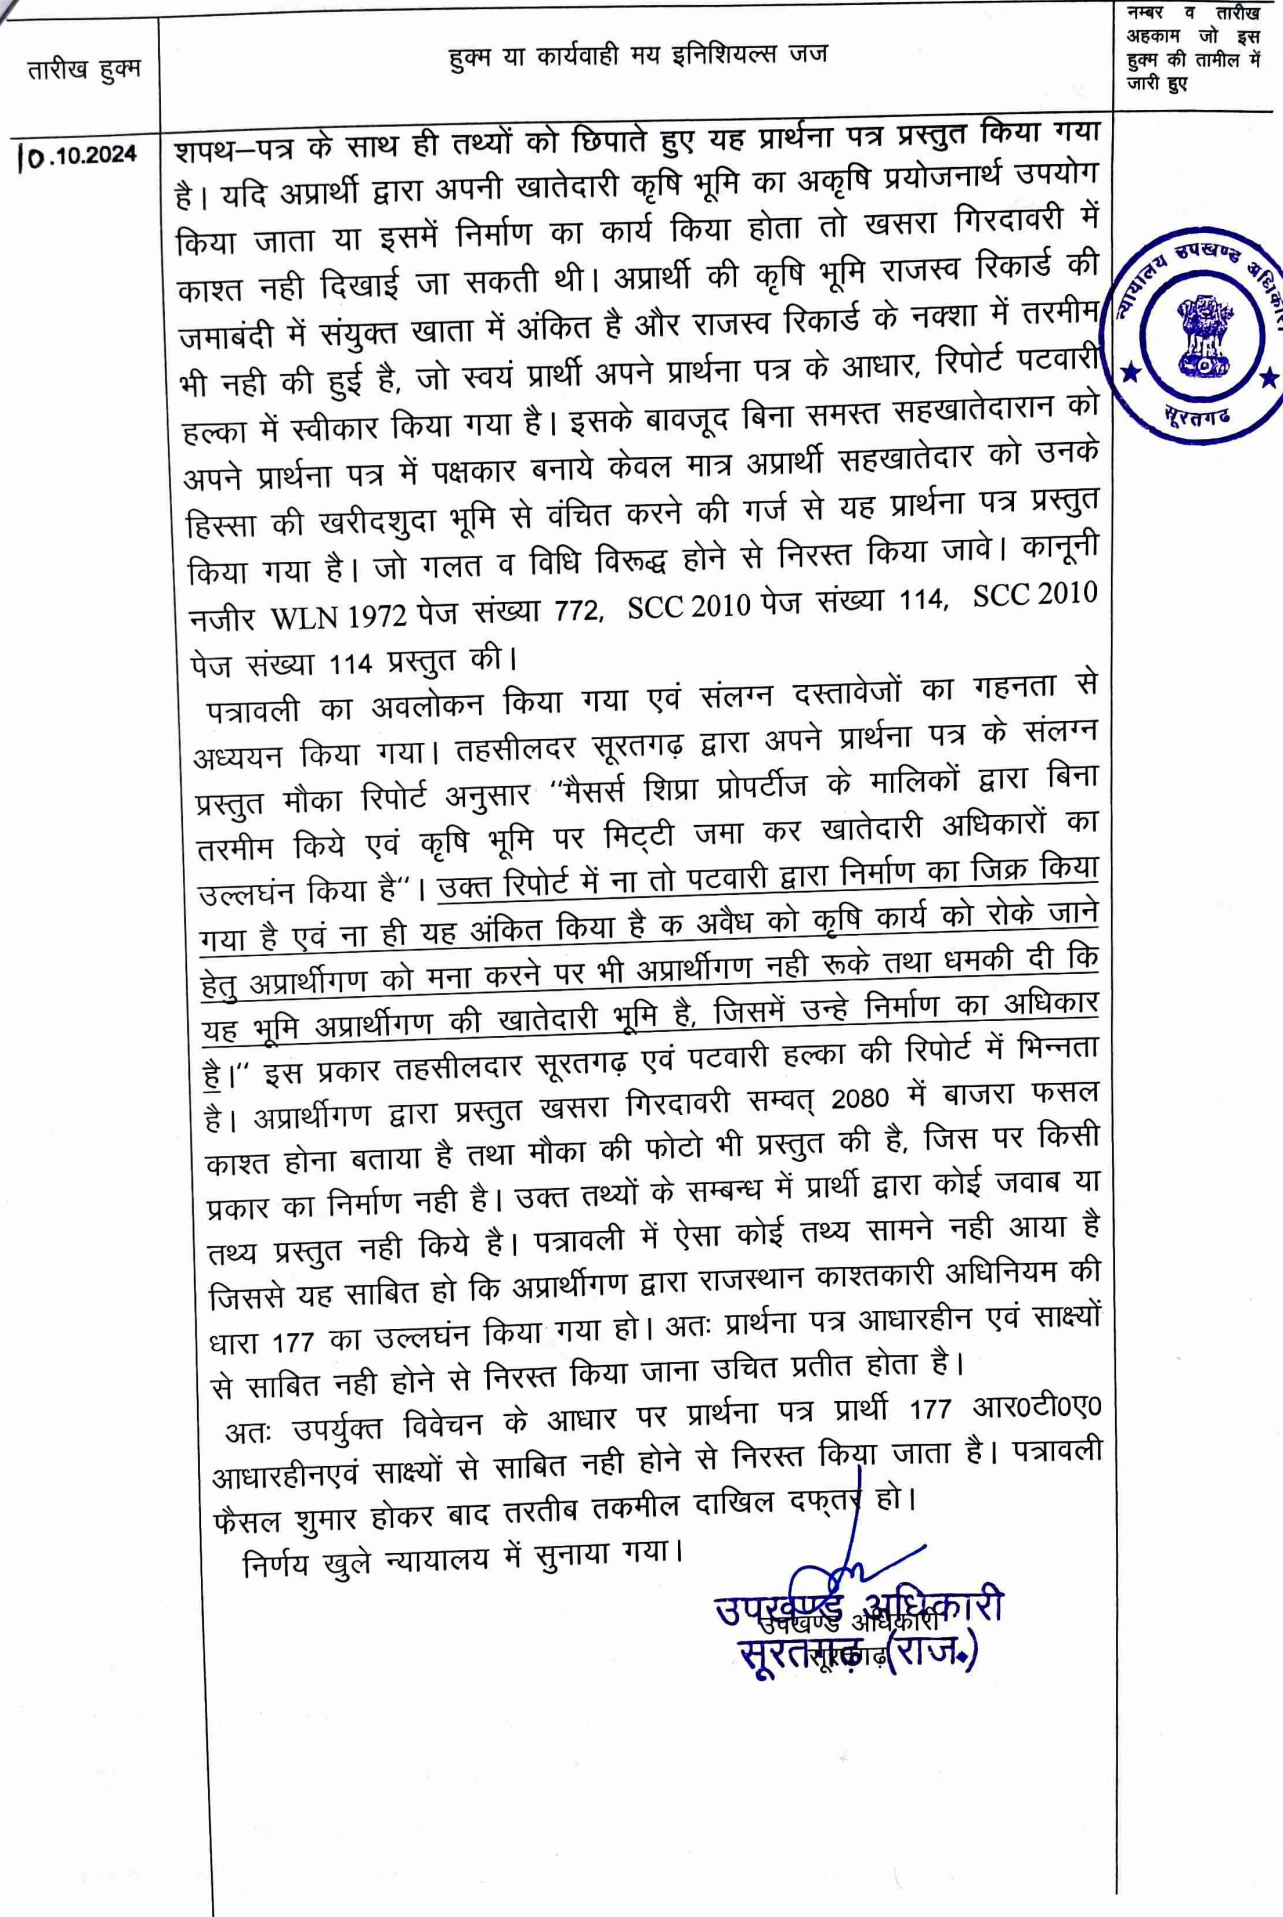 तारीख हुक्म
हुक्म या कार्यवाही मय इनिशियल्स जज
नम्बर व तारीख
अहकाम जो इस
हुक्म की तामील में
जारी हुए
10.10.2024
शपथ–पत्र के साथ ही तथ्यों को छिपाते हुए यह प्रार्थना पत्र प्रस्तुत किया गया
है। यदि अप्रार्थी द्वारा अपनी खातेदारी कृषि भूमि का अकृषि प्रयोजनार्थ उपयोग
किया जाता या इसमें निर्माण का कार्य किया होता तो खसरा गिरदावरी में
काश्त नही दिखाई जा सकती थी। अप्रार्थी की कृषि भूमि राजस्व रिकार्ड की
जमाबंदी में संयुक्त खाता में अंकित है और राजस्व रिकार्ड के नक्शा में तरमीम
भी नही की हुई है, जो स्वयं प्रार्थी अपने प्रार्थना पत्र के आधार, रिपोर्ट पटवारी
हल्का में स्वीकार किया गया है। इसके बावजूद बिना समस्त सहखातेदारान को
अपने प्रार्थना पत्र में पक्षकार बनाये केवल मात्र अप्रार्थी सहखातेदार को उनके
हिस्सा की खरीदशुदा भूमि से वंचित करने की गर्ज से यह प्रार्थना पत्र प्रस्तुत
किया गया है। जो गलत व विधि विरूद्ध होने से निरस्त किया जावे। कानूनी
नजीर WLN 1972 पेज संख्या 772, SCC 2010 पेज संख्या 114, SCC 2010
पेज संख्या 114 प्रस्तुत की।
पत्रावली का अवलोकन किया गया एवं संलग्न दस्तावेजों का गहनता से
अध्ययन किया गया। तहसीलदर सूरतगढ़ द्वारा अपने प्रार्थना पत्र के संलग्न
प्रस्तुत मौका रिपोर्ट अनुसार "मैसर्स शिप्रा प्रोपर्टीज के मालिकों द्वारा बिना
तरमीम किये एवं कृषि भूमि पर मिट्टी जमा कर खातेदारी अधिकारों का
उल्लघंन किया है"। उक्त रिपोर्ट में ना तो पटवारी द्वारा निर्माण का जिक्र किया
गया है एवं ना ही यह अंकित किया है क अवैध को कृषि कार्य को रोके जाने
हेतु अप्रार्थीगण को मना करने पर भी अप्रार्थीगण नही रूके तथा धमकी दी कि
यह भूमि अप्रार्थीगण की खातेदारी भूमि है, जिसमें उन्हे निर्माण का अधिकार
है।" इस प्रकार तहसीलदार सूरतगढ़ एवं पटवारी हल्का की रिपोर्ट में भिन्नता
है। अप्रार्थीगण द्वारा प्रस्तुत खसरा गिरदावरी सम्वत् 2080 में बाजरा फसल
काश्त होना बताया है तथा मौका की फोटो भी प्रस्तुत की है, जिस पर किसी
प्रकार का निर्माण नही है। उक्त तथ्यों के सम्बन्ध में प्रार्थी द्वारा कोई जवाब या
तथ्य प्रस्तुत नही किये है। पत्रावली में ऐसा कोई तथ्य सामने नही आया है
जिससे यह साबित हो कि अप्रार्थीगण द्वारा राजस्थान काश्तकारी अधिनियम की
धारा 177 का उल्लघंन किया गया हो। अतः प्रार्थना पत्र आधारहीन एवं साक्ष्यों
से साबित नही होने से निरस्त किया जाना उचित प्रतीत होता है।
अतः उपर्युक्त विवेचन के आधार पर प्रार्थना पत्र प्रार्थी 177 आर0टी0ए0
आधारहीनएवं साक्ष्यों से साबित नही होने से निरस्त किया जाता है। पत्रावली
फैसल शुमार होकर बाद तरतीब तकमील दाखिल दफ्तर हो।
निर्णय खुले न्यायालय में सुनाया गया।
उपखण्ड अधिकारी
सूरतगढ़ (राज.)
उपखण्ड अधिकारी
सूरतगढ़
न्यायालय उपखण्ड अधिकारी
सूरतगढ